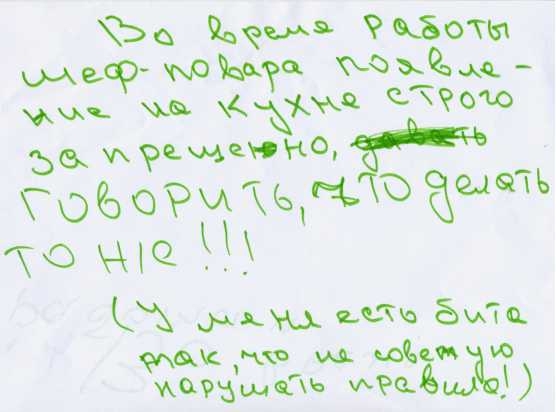 Во время работы
шеф-повара появле-
ние на кухне строго
запрещенно,
говорить, что делать
то же!!!
(У меня есть бита
так, что не советую
нарушать правила!)